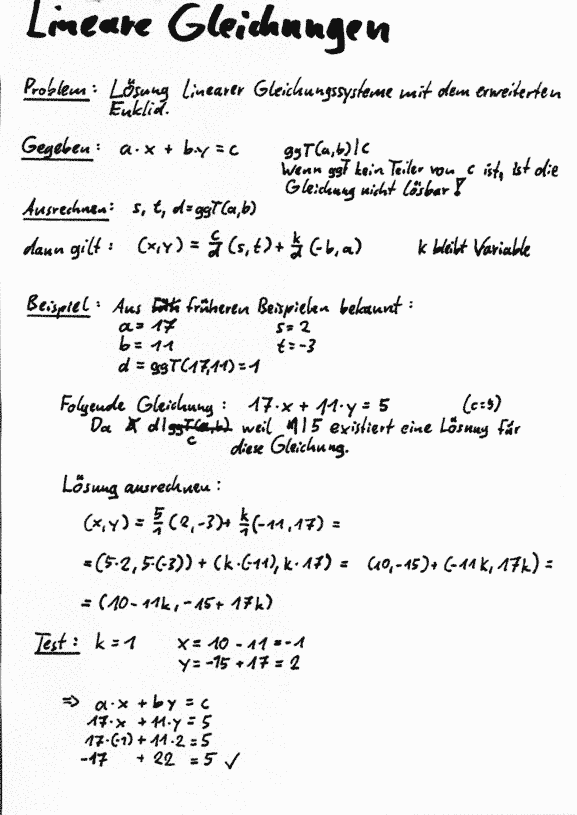 Lineare Gleichungen
Problem: Lösung linearer Gleichungssysteme mit dem erweiterten
Euklid.
Gegeben: a·x + b·y = c ggT(a,b)|c
Wenn ggT kein Teiler von c ist, ist die
Gleichung nicht lösbar!
Ausrechnen: s, t, d=ggT(a,b)
dann gilt: (x,y) = c/d (s,t) + k/d (-b,a) k bleibt Variable
Beispiel: Aus früheren Beispielen bekannt:
a = 17 s = 2
b = 11 t = -3
d = ggT(17,11) = 1
Folgende Gleichung: 17·x + 11·y = 5 (c=5)
Da d|ggT(a,b) weil 1|5 existiert eine Lösung für
c
diese Gleichung.
Lösung ausrechnen:
(x,y) = 5/1 (2,-3) + k/1 (-11,17) =
= (5·2, 5·(-3)) + (k·(-11), k·17) = (10,-15) + (-11k, 17k) =
= (10-11k, -15+17k)
Test: k = 1 x = 10 - 11 = -1
y = -15 + 17 = 2
=> a·x + by = c
17·x + 11·y = 5
17·(-1) + 11·2 = 5
-17 + 22 = 5 ✓